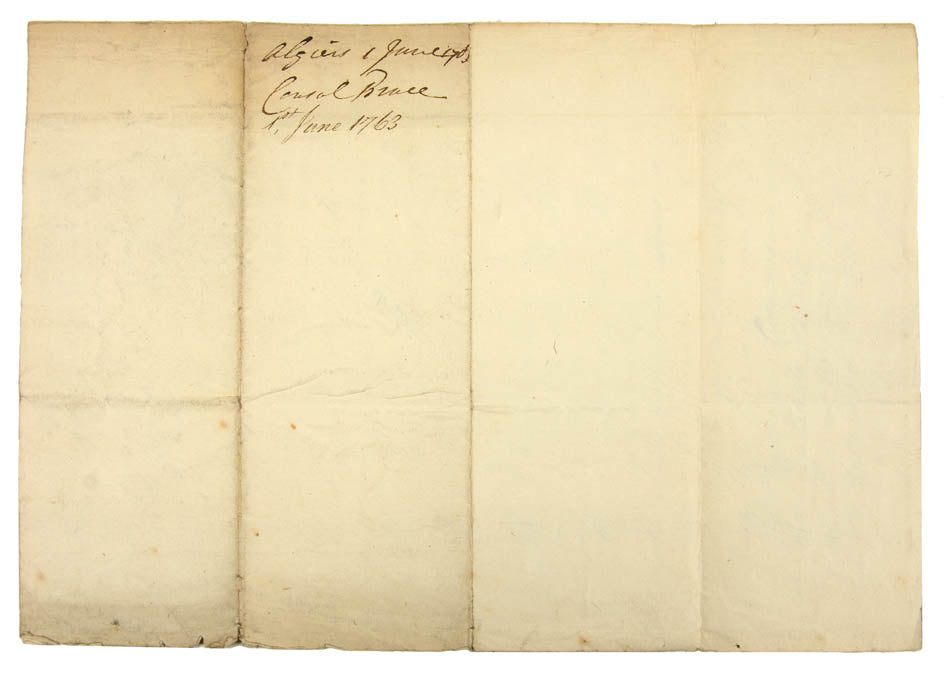 Algiers 1 June 1763
Consul Bruce
1st June 1763